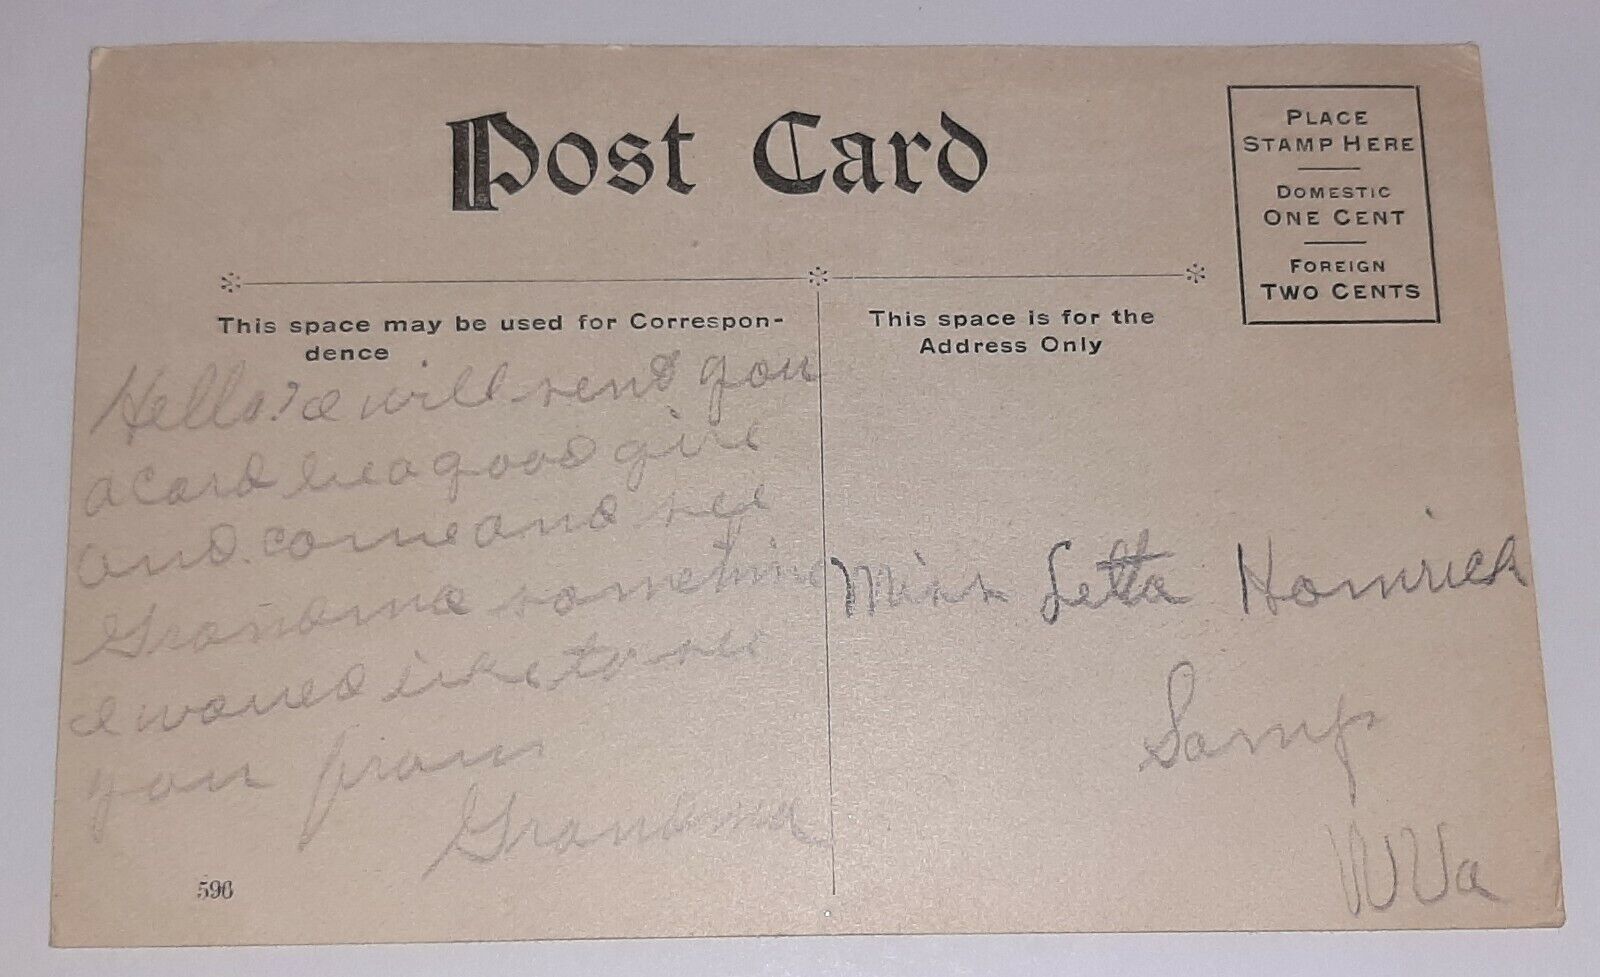 Post Card
PLACE
STAMP HERE
DOMESTIC
ONE CENT
FOREIGN
TWO CENTS
This space may be used for Correspon-
dence
This space is for the
Address Only
Hello. I will send you
a card be a good girl
and. come and see
Grandma sometime
I would like to see
you from
Grandma
Miss Letta Hamrick
Samp
W Va
596